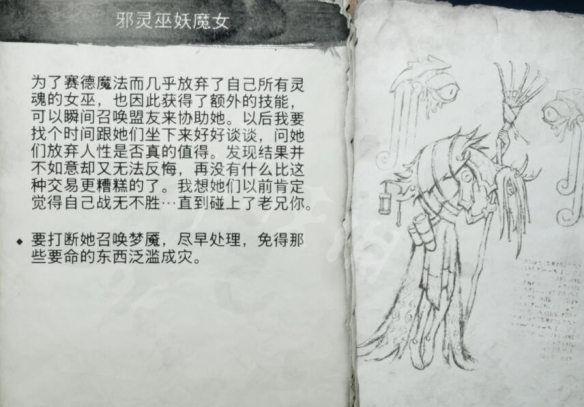 邪灵巫妖魔女
为了赛德魔法而几乎放弃了自己所有灵
魂的女巫，也因此获得了额外的技能，
可以瞬间召唤盟友来协助她。以后我要
找个时间跟她们坐下来好好谈谈，问她
们放弃人性是否真的值得。发现结果并
不如意却又无法反悔，再没有什么比这
种交易更糟糕的了。我想她们以前肯定
觉得自己战无不胜…直到碰上了老兄你。
◆ 要打断她召唤梦魇，尽早处理，免得那
些要命的东西泛滥成灾。